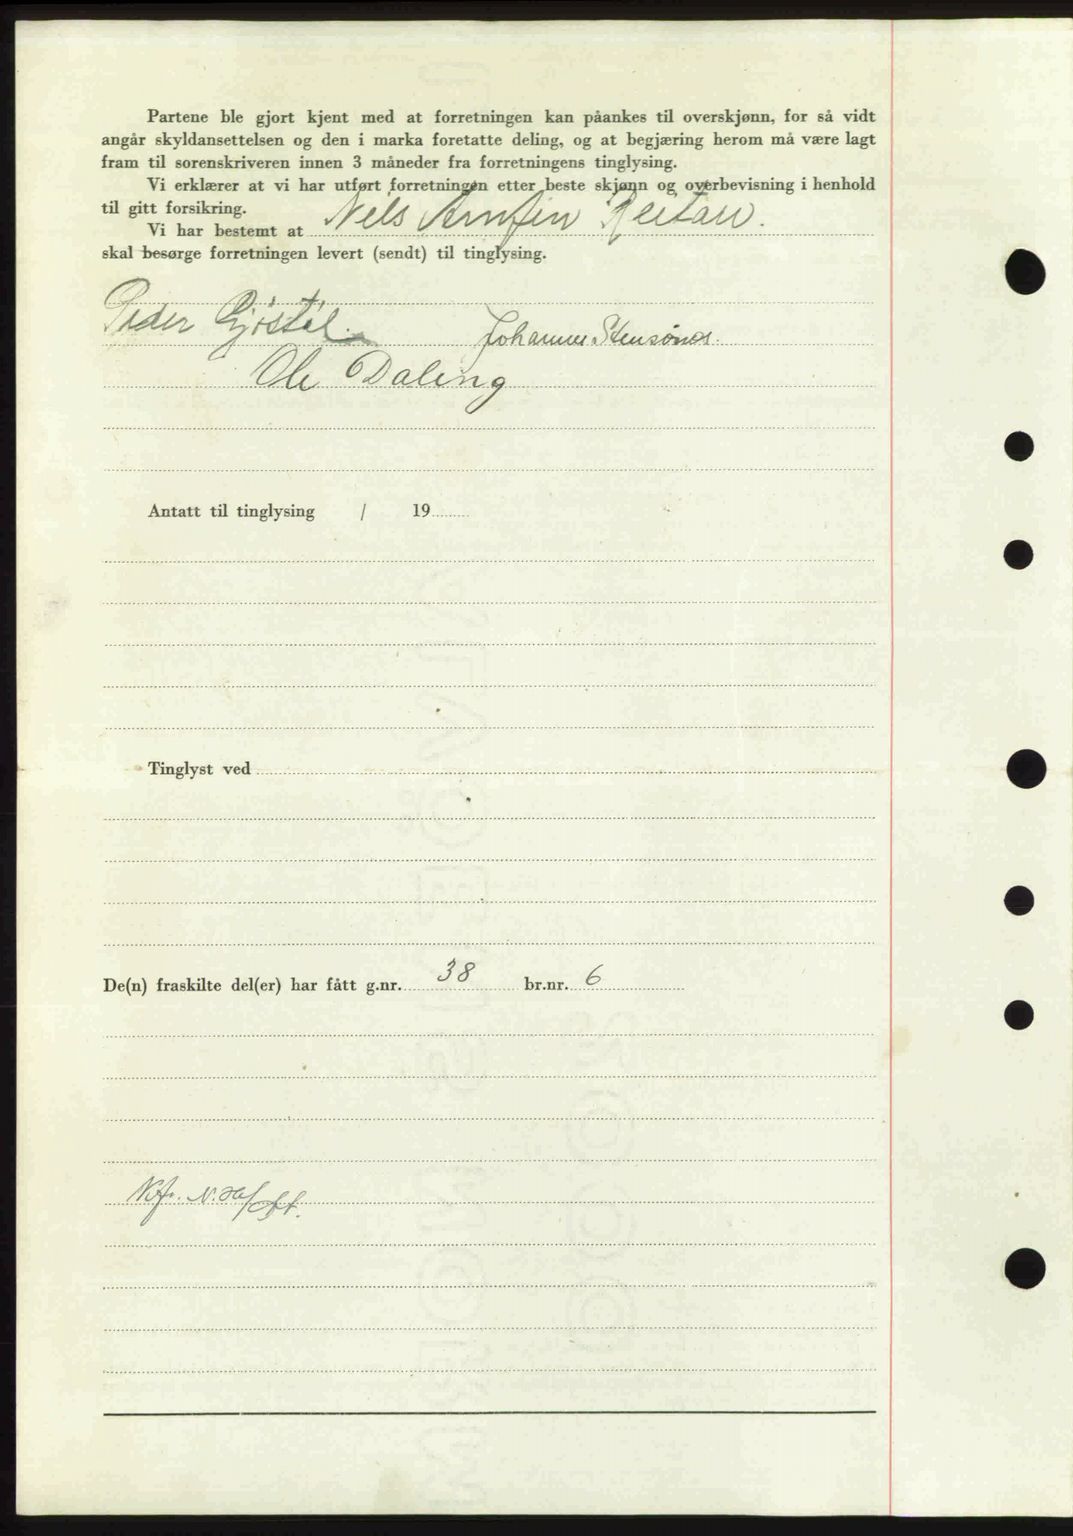 Partene ble gjort kjent med at forretningen kan påankes til overskjønn, for så vidt
angår skyldansettelsen og den i marka foretatte deling, og at begjæring herom må være lagt
fram til sorenskriveren innen 3 måneder fra forretningens tinglysing.
Vi erklærer at vi har utført forretningen etter beste skjønn og overbevisning i henhold
til gitt forsikring.
Vi har bestemt at Nils Arnfin Reitan.
skal besørge forretningen levert (sendt) til tinglysing.
Peder Gjøstøl.
Johannes Stensønes.
Ole Daling
Antatt til tinglysing / 19
Tinglyst ved
De(n) fraskilte del(er) har fått g.nr. 38 br.nr. 6